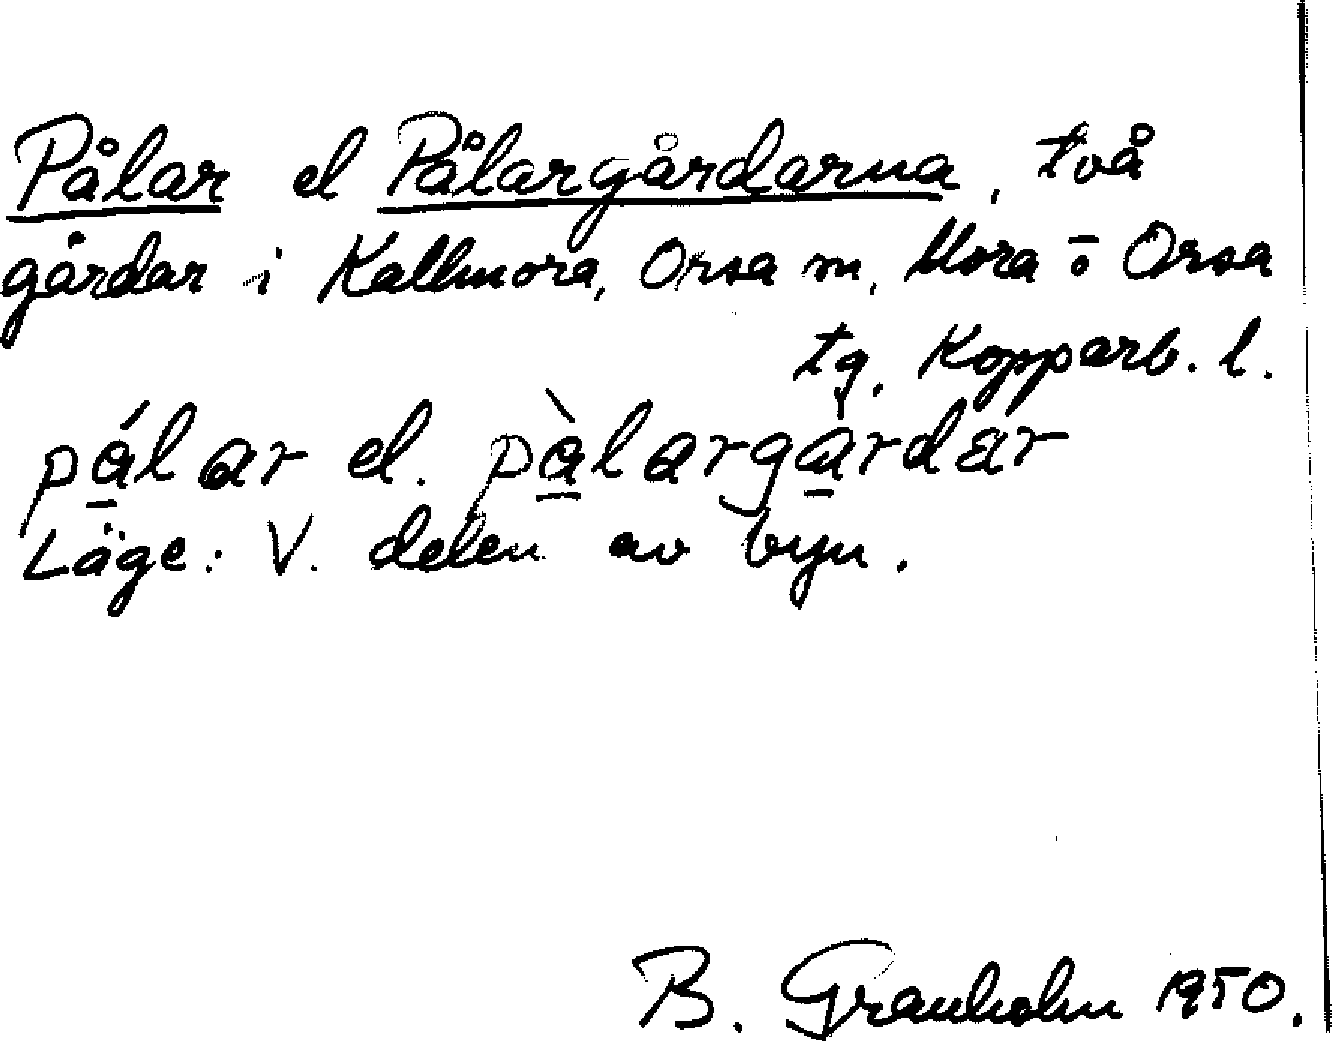 Pålar el Pålargårdarna, två
gårdar i Kallmora, Orsa m, Mora o Orsa
tg. Kopparb. l.
pålar el. pålargårdar
Läge: V. delen av byn.
B. Granholm 1950.